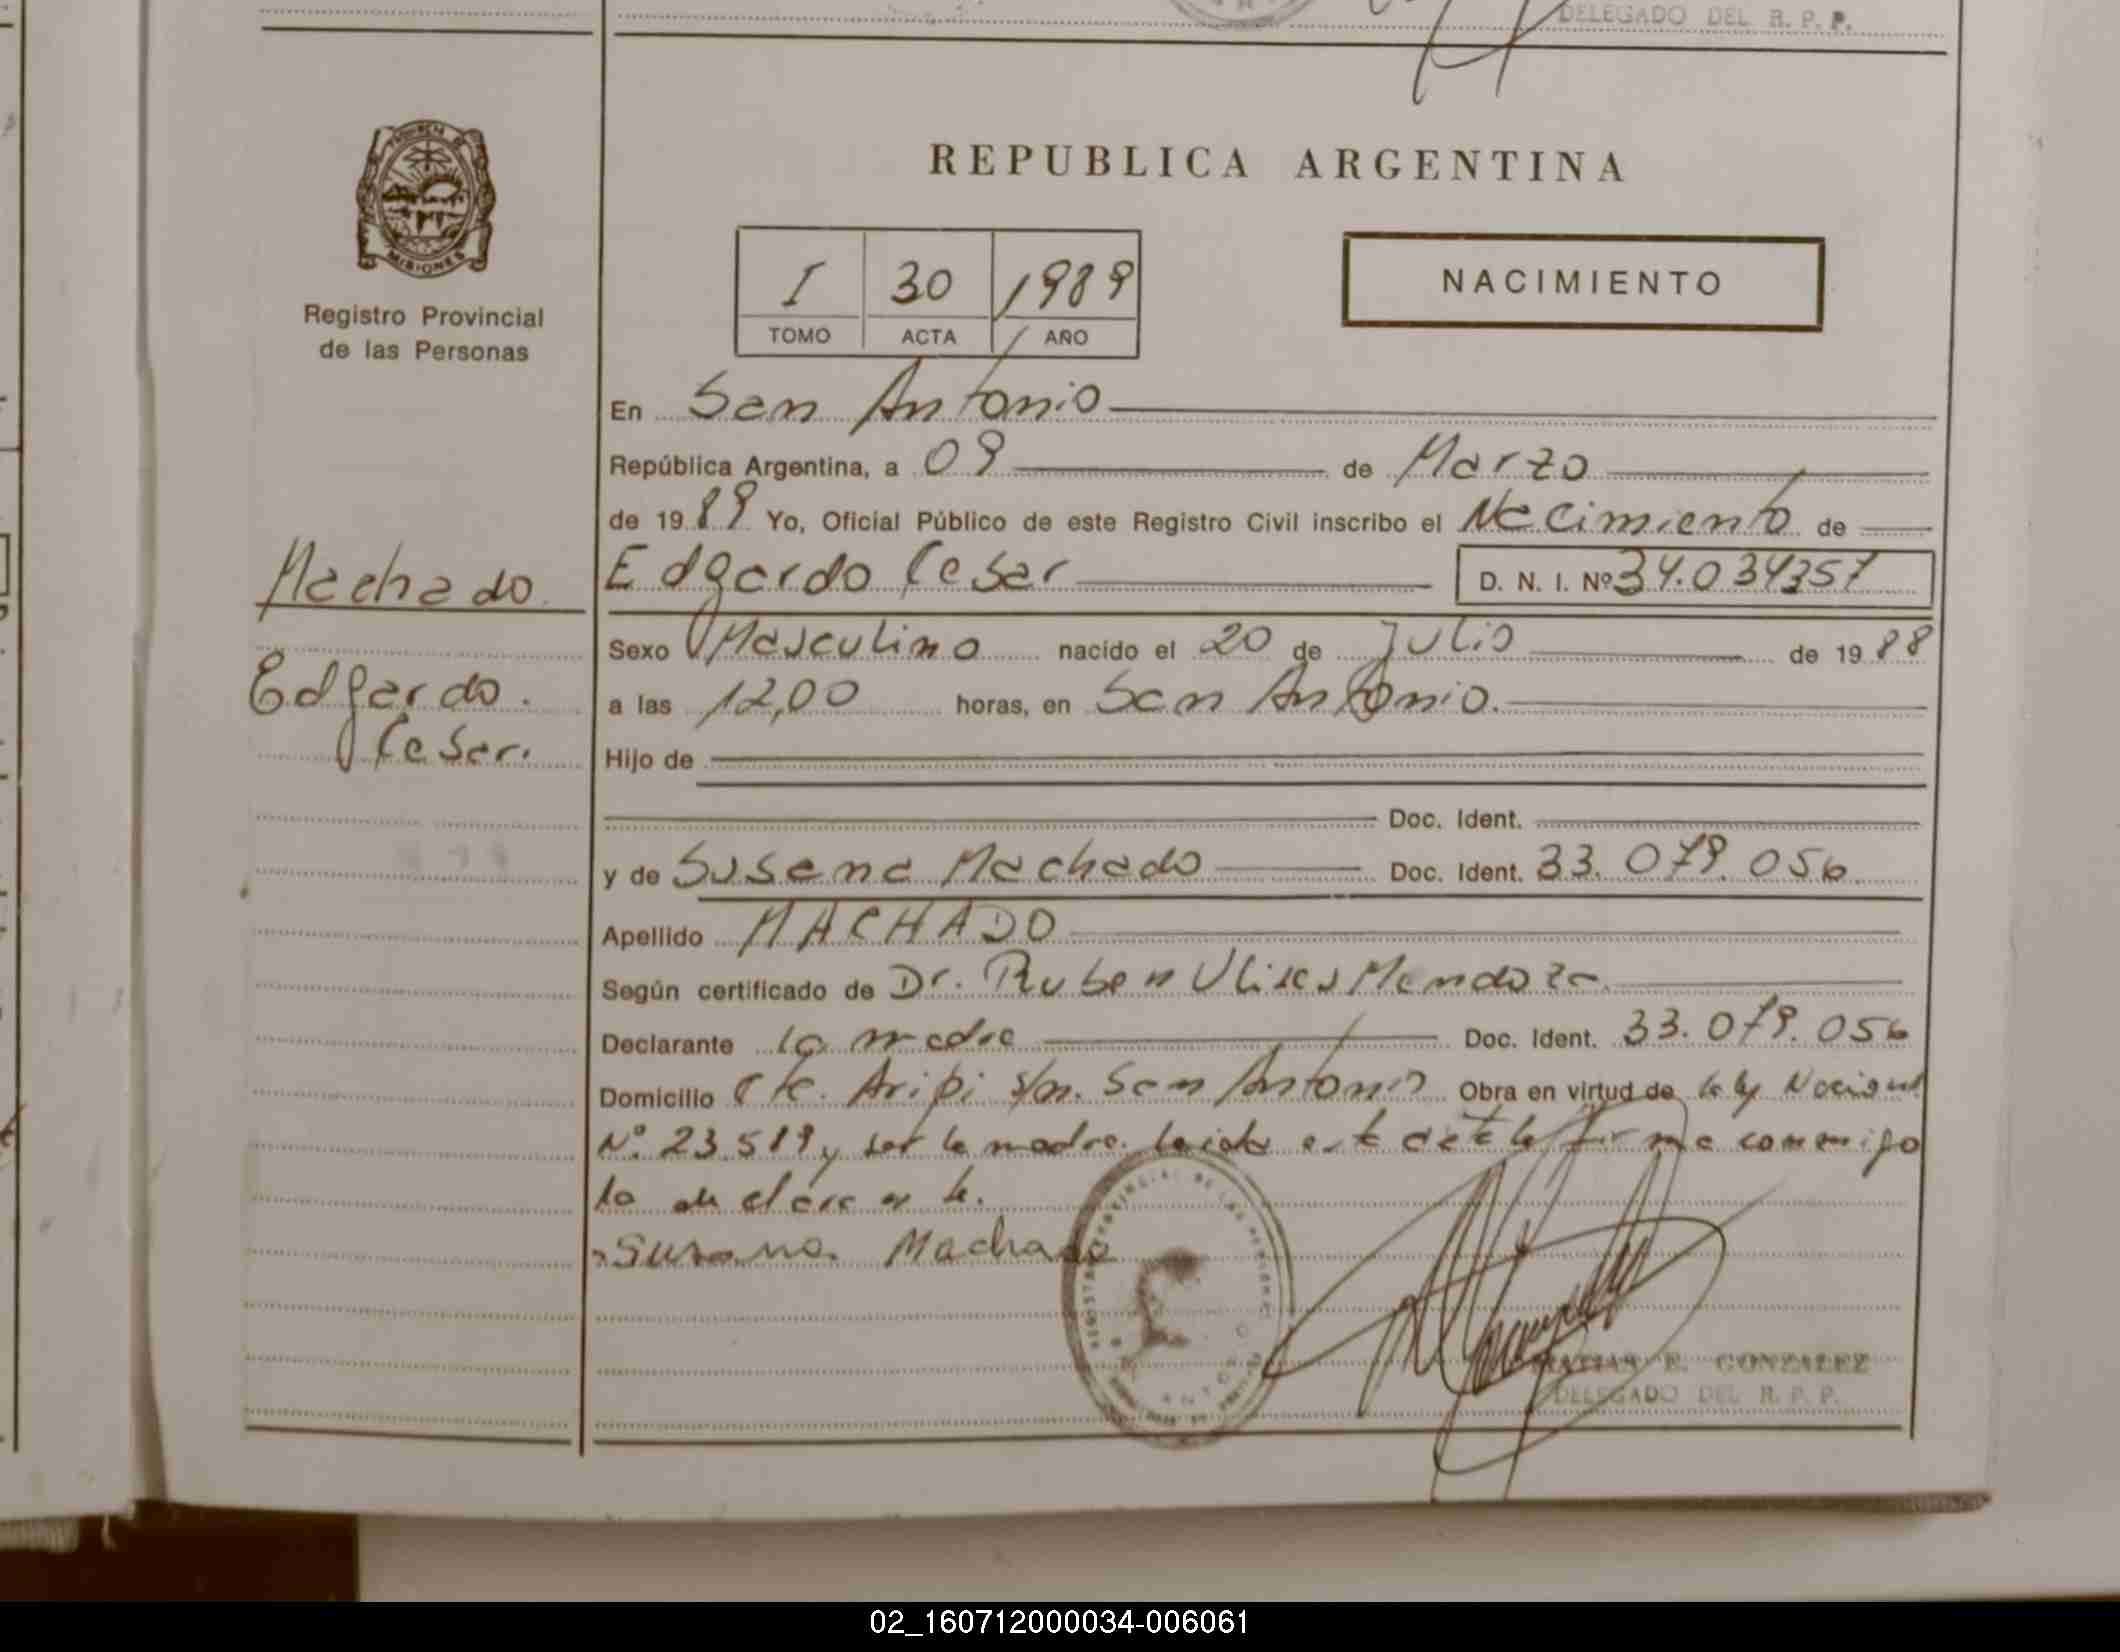 DELEGADO DEL R. P. P.
PROVINCIA DE
MISIONES
Registro Provincial
de las Personas
REPUBLICA ARGENTINA
I 30 1989
TOMO ACTA AÑO
NACIMIENTO
En San Antonio
República Argentina, a 09 de Marzo
de 1989 Yo, Oficial Público de este Registro Civil inscribo el Nacimiento de
Machado
Edgardo Cesar D. N. I. Nº 34.034357
Sexo Masculino nacido el 20 de Julio de 1988
Edgardo
a las 12,00 horas, en San Antonio.
Cesar.
Hijo de
Doc. Ident.
y de Susana Machado Doc. Ident. 33.079.056
Apellido MACHADO
Según certificado de Dr. Ruben Ulises Mendoza
Declarante la madre Doc. Ident. 33.079.056
Domicilio Cte. s/n. San Antonio Obra en virtud de la ley Nacional
Nº 23.519 y ser la madre. Leida este acta la firma conmigo
la declarante.
Susana Machado
MATIAS E. GONZALEZ
DELEGADO DEL R. P. P.
02_160712000034-006061